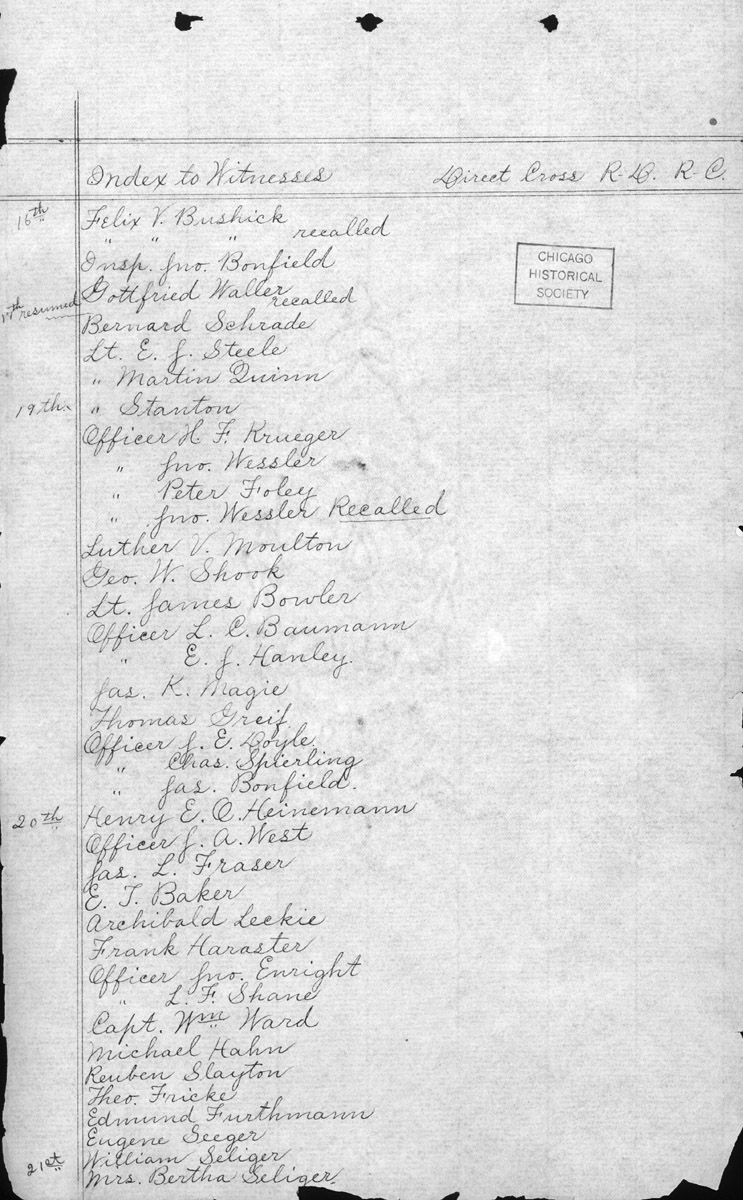 Index to Witnesses Direct Cross R-D. R-C.
16th Felix V. Bushick
" " " recalled
Insp. Jno. Bonfield
CHICAGO
HISTORICAL
SOCIETY
17th resumed Gottfried Waller recalled
Bernard Schrade
Lt. E. J. Steele
" Martin Quinn
19th. " Stanton
Officer H. F. Krueger
" Jno. Wessler
" Peter Foley
" Jno. Wessler Recalled
Luther V. Moulton
Geo. W. Shook
Lt. James Bowler
Officer L. C. Baumann
" E. J. Hanley.
Jas. K. Magie
Thomas Greif.
Officer J. E. Doyle
" Chas. Spierling
" Jas. Bonfield.
20th Henry E. O. Heinemann
Officer J. A. West
Jas. L. Fraser
E. T. Baker
Archibald Leckie
Frank Haraster
Officer Jno. Enright
" L. F. Shane
Capt. Wm Ward
Michael Hahn
Reuben Slayton
Theo. Fricke
Edmund Furthmann
Eugene Seeger
21st William Seliger
Mrs. Bertha Seliger.